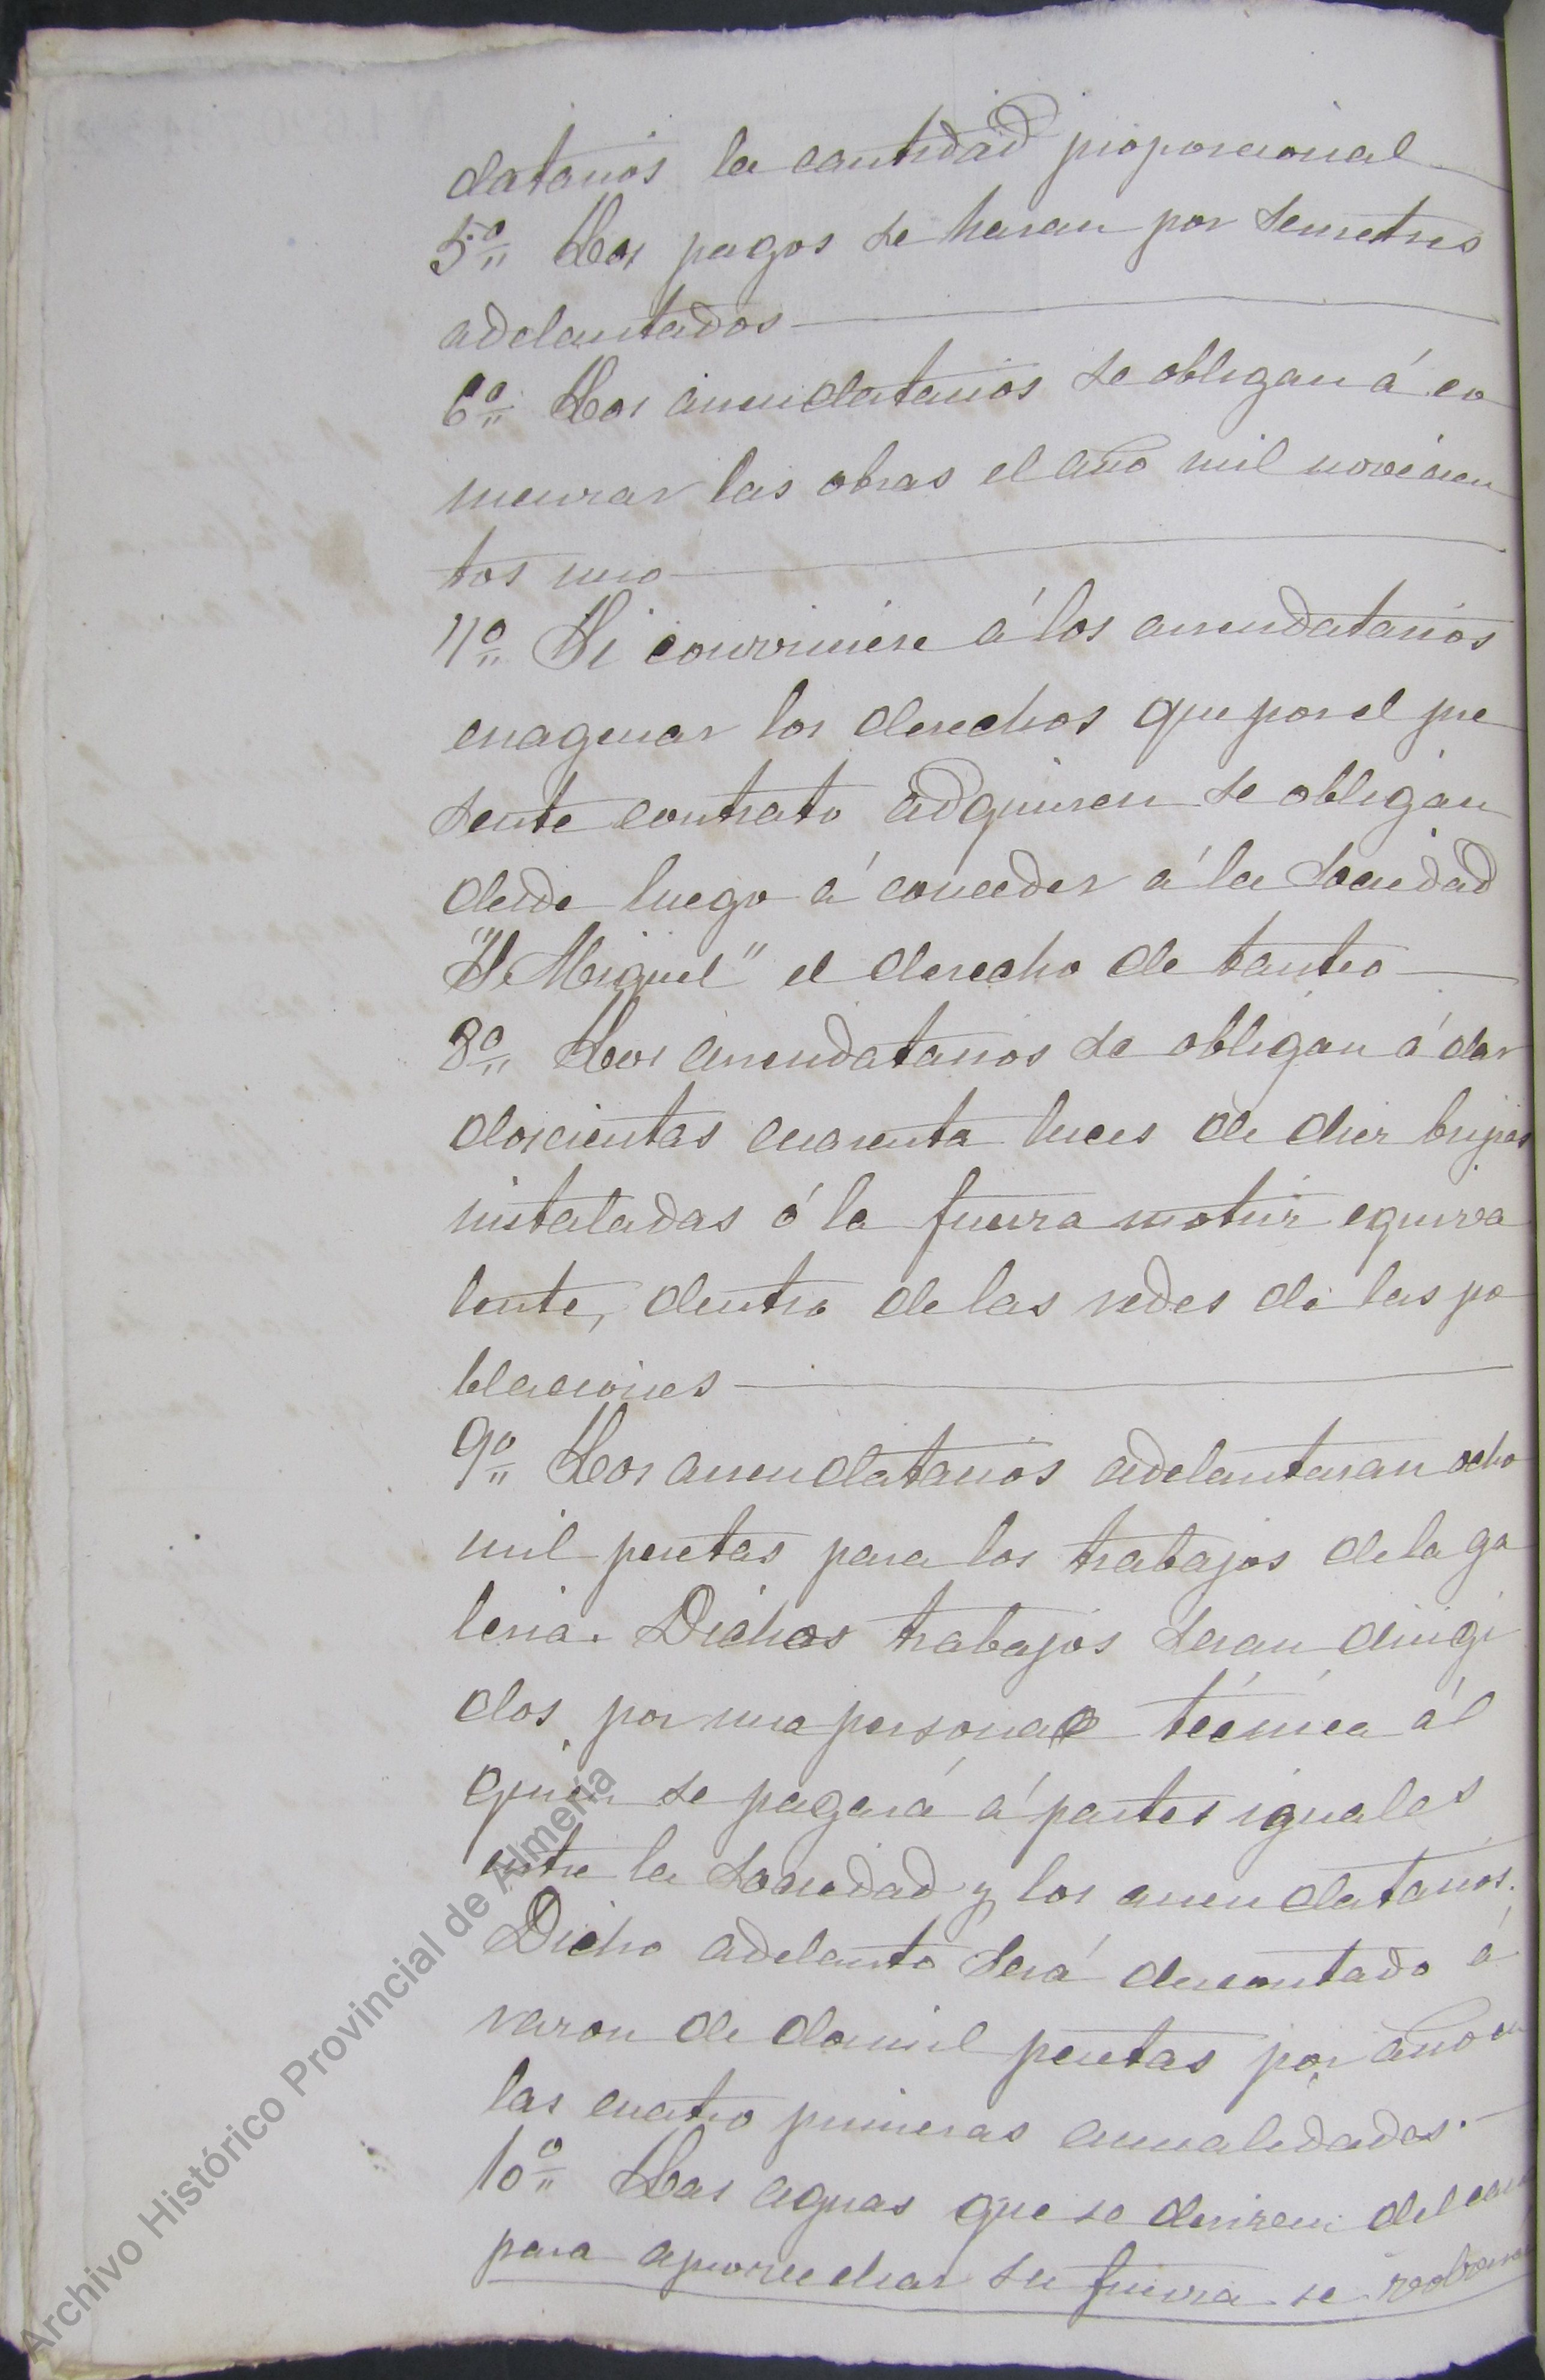 datarios la cantidad proporcional
5ª Los pagos se haran por semestres
adelantados
6ª Los arrendatarios se obligan á co
menzar las obras el año mil novecien
tos uno
7ª Si conviniere á los arrendatarios
enagenar los derechos que por el pre
sente contrato adquieren se obligan
desde luego á conceder á la Sociedad
"S. Miguel" el derecho de tanteo
8ª Los arrendatarios se obligan á dar
doscientas cuarenta luces de diez bujias
instaladas ó la fuerza motriz equiva
lente, dentro de las redes de las po
blaciones
9ª Los arrendatarios adelantaran ocho
mil pesetas para los trabajos de la ga
leria. Dichos trabajos seran dirigi
dos por una persona técnica ál
quien se pagará á partes iguales
entre la Sociedad y los arrendatarios.
Dicho adelanto será descontado á
razon de dosmil pesetas por año en
las cuatro primeras anualidades.
10ª Las aguas que se deriven del
para aprovechar su fuerza se
Archivo Histórico Provincial de Almería